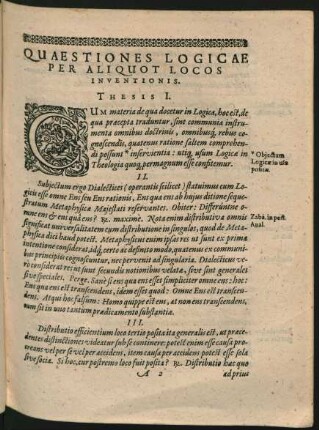 QUAESTIONES LOGICAE
PER ALIQUOT LOCOS
INVENTIONIS.
THESIS I.
CUM materia de qua docetur in Logica, hoc est, de
qua præcepta traduntur, sint communia instru-
menta omnibus doctrinis, omnibusq; rebus co-
gnoscendis, quatenus ratione saltem comprehen-
di possunt * inservientia: utiq; usum Logicæ in
Theologia quoq; permagnum esse confitemur.
* Objectum
Logicæ in usu
positæ.
II.
Subjectum ergo Dialectices (operantis scilicet) statuimus cum Lo-
gicis esse omne Ens sive Ens rationis, Ens qua ens ab hujus ditione seque-
stratum Metaphysicæ Majestati reservantes. Obiter: Differuntne o-
mne ens & ens qua ens? ℞. maxime. Nota enim distributiva omnis
significat universalitatem cum distributione in singulas, quod de Meta-
physica dici haud potest. Metaphysicus enim
Zaba. in post.
Anal.
principiis cognoscuntur, nec pervenit ad singularia. Dialecticus ve-
ro considerat res ut sunt secundis notionibus velatæ, seve sint generales
sive speciales. Perge. Sane si ens qua ens esset simpliciter omne ens: hoc:
Ens qua ens est transcendens, idem esset quod: Omne Ens est transcen-
dens. Atqui hoc falsum: Homo quippe est ens, at non ens transcendens,
cum sit in uno tantum prædicamento substantia.
III.
Distributio efficientium loco tertio posita ita generalis est, ut præce-
dentes distinctiones videatur sub se continere: potest enim esse causa pro-
creans vel per se vel per accidens, item causa per accidens potest esse sola
sive socia. Si hoc, cur postremo loco fuit posita? ℞. Distributio hæc quo
A 2
ad prius